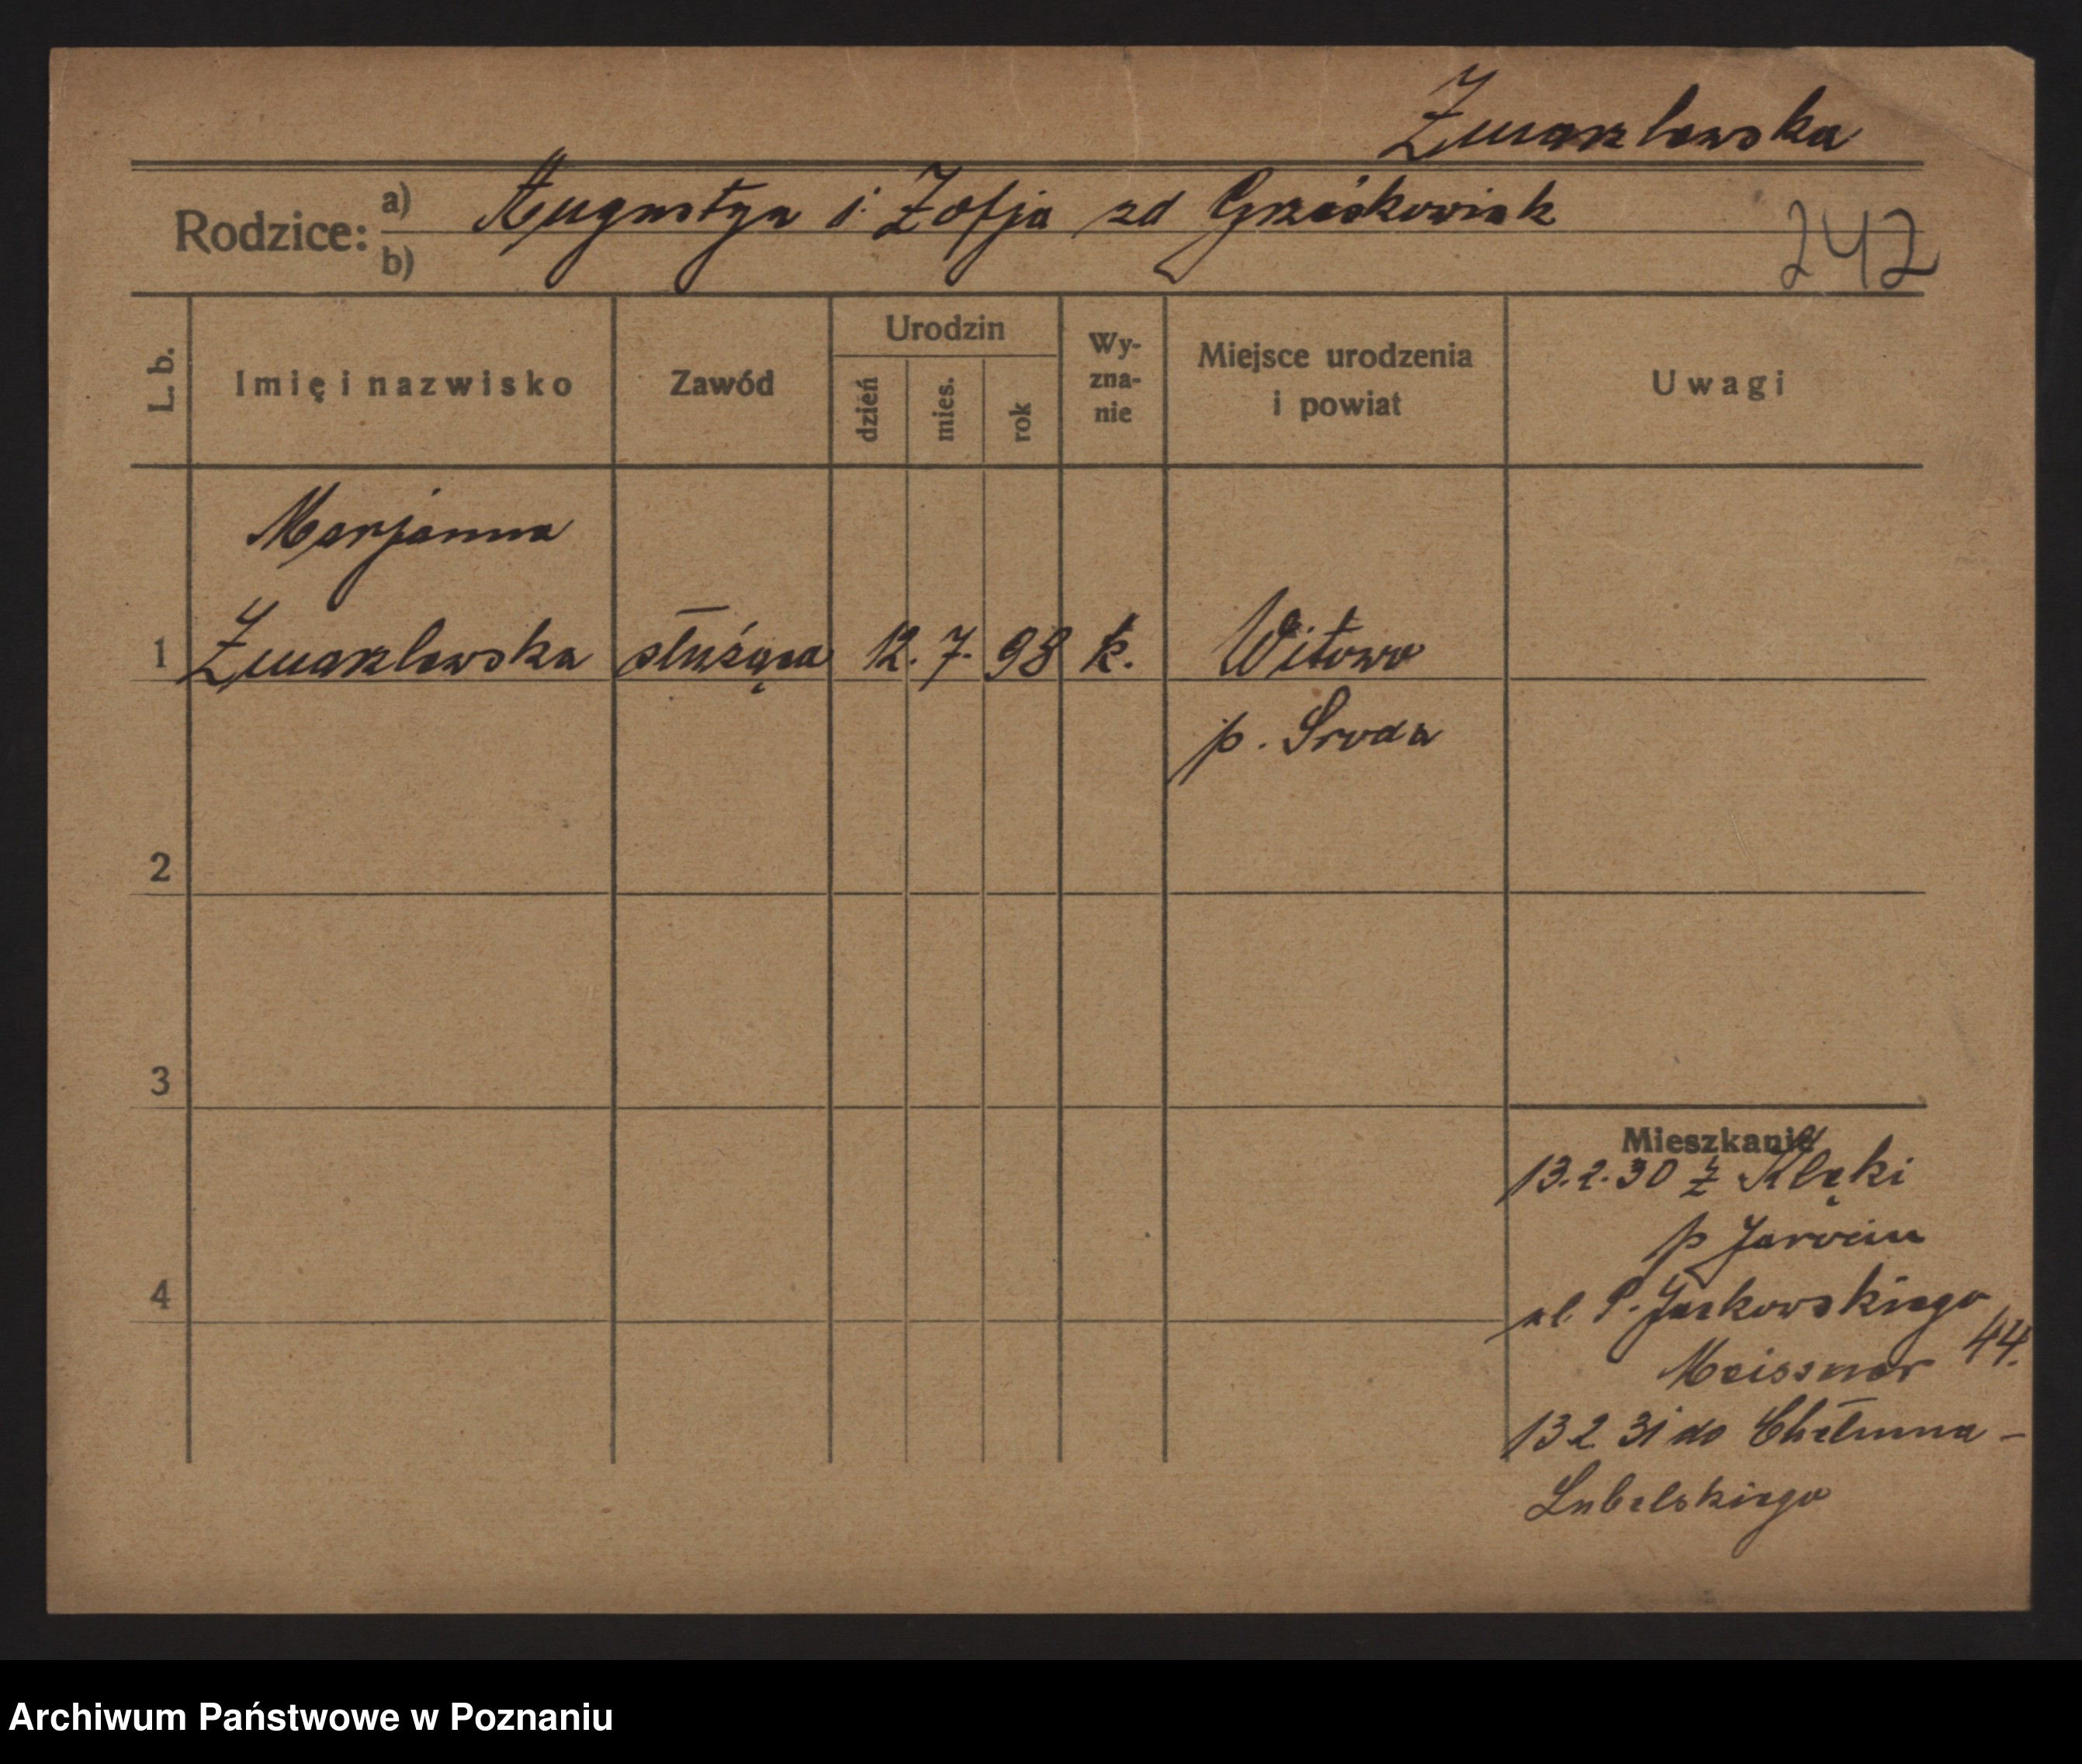 Zmarzlewska
Rodzice: a) Augustyn i Zofja zd Grześkowiak
b)
242
L. b.
Imię i nazwisko
Zawód
Urodzin
dzień
mies.
rok
Wy-
zna-
nie
Miejsce urodzenia
i powiat
Uwagi
Marjanna
1 Zmarzlewska służąca 12. 7. 98 k. Witowo
p. Sroda
2
3
4
Mieszkanie
13.2.30 z Klęki
p Jarocin
ul. P. Jackowskiego
44.
Meissner
13 2 31 do Chełmna-
Lubelskiego
Archiwum Państwowe w Poznaniu